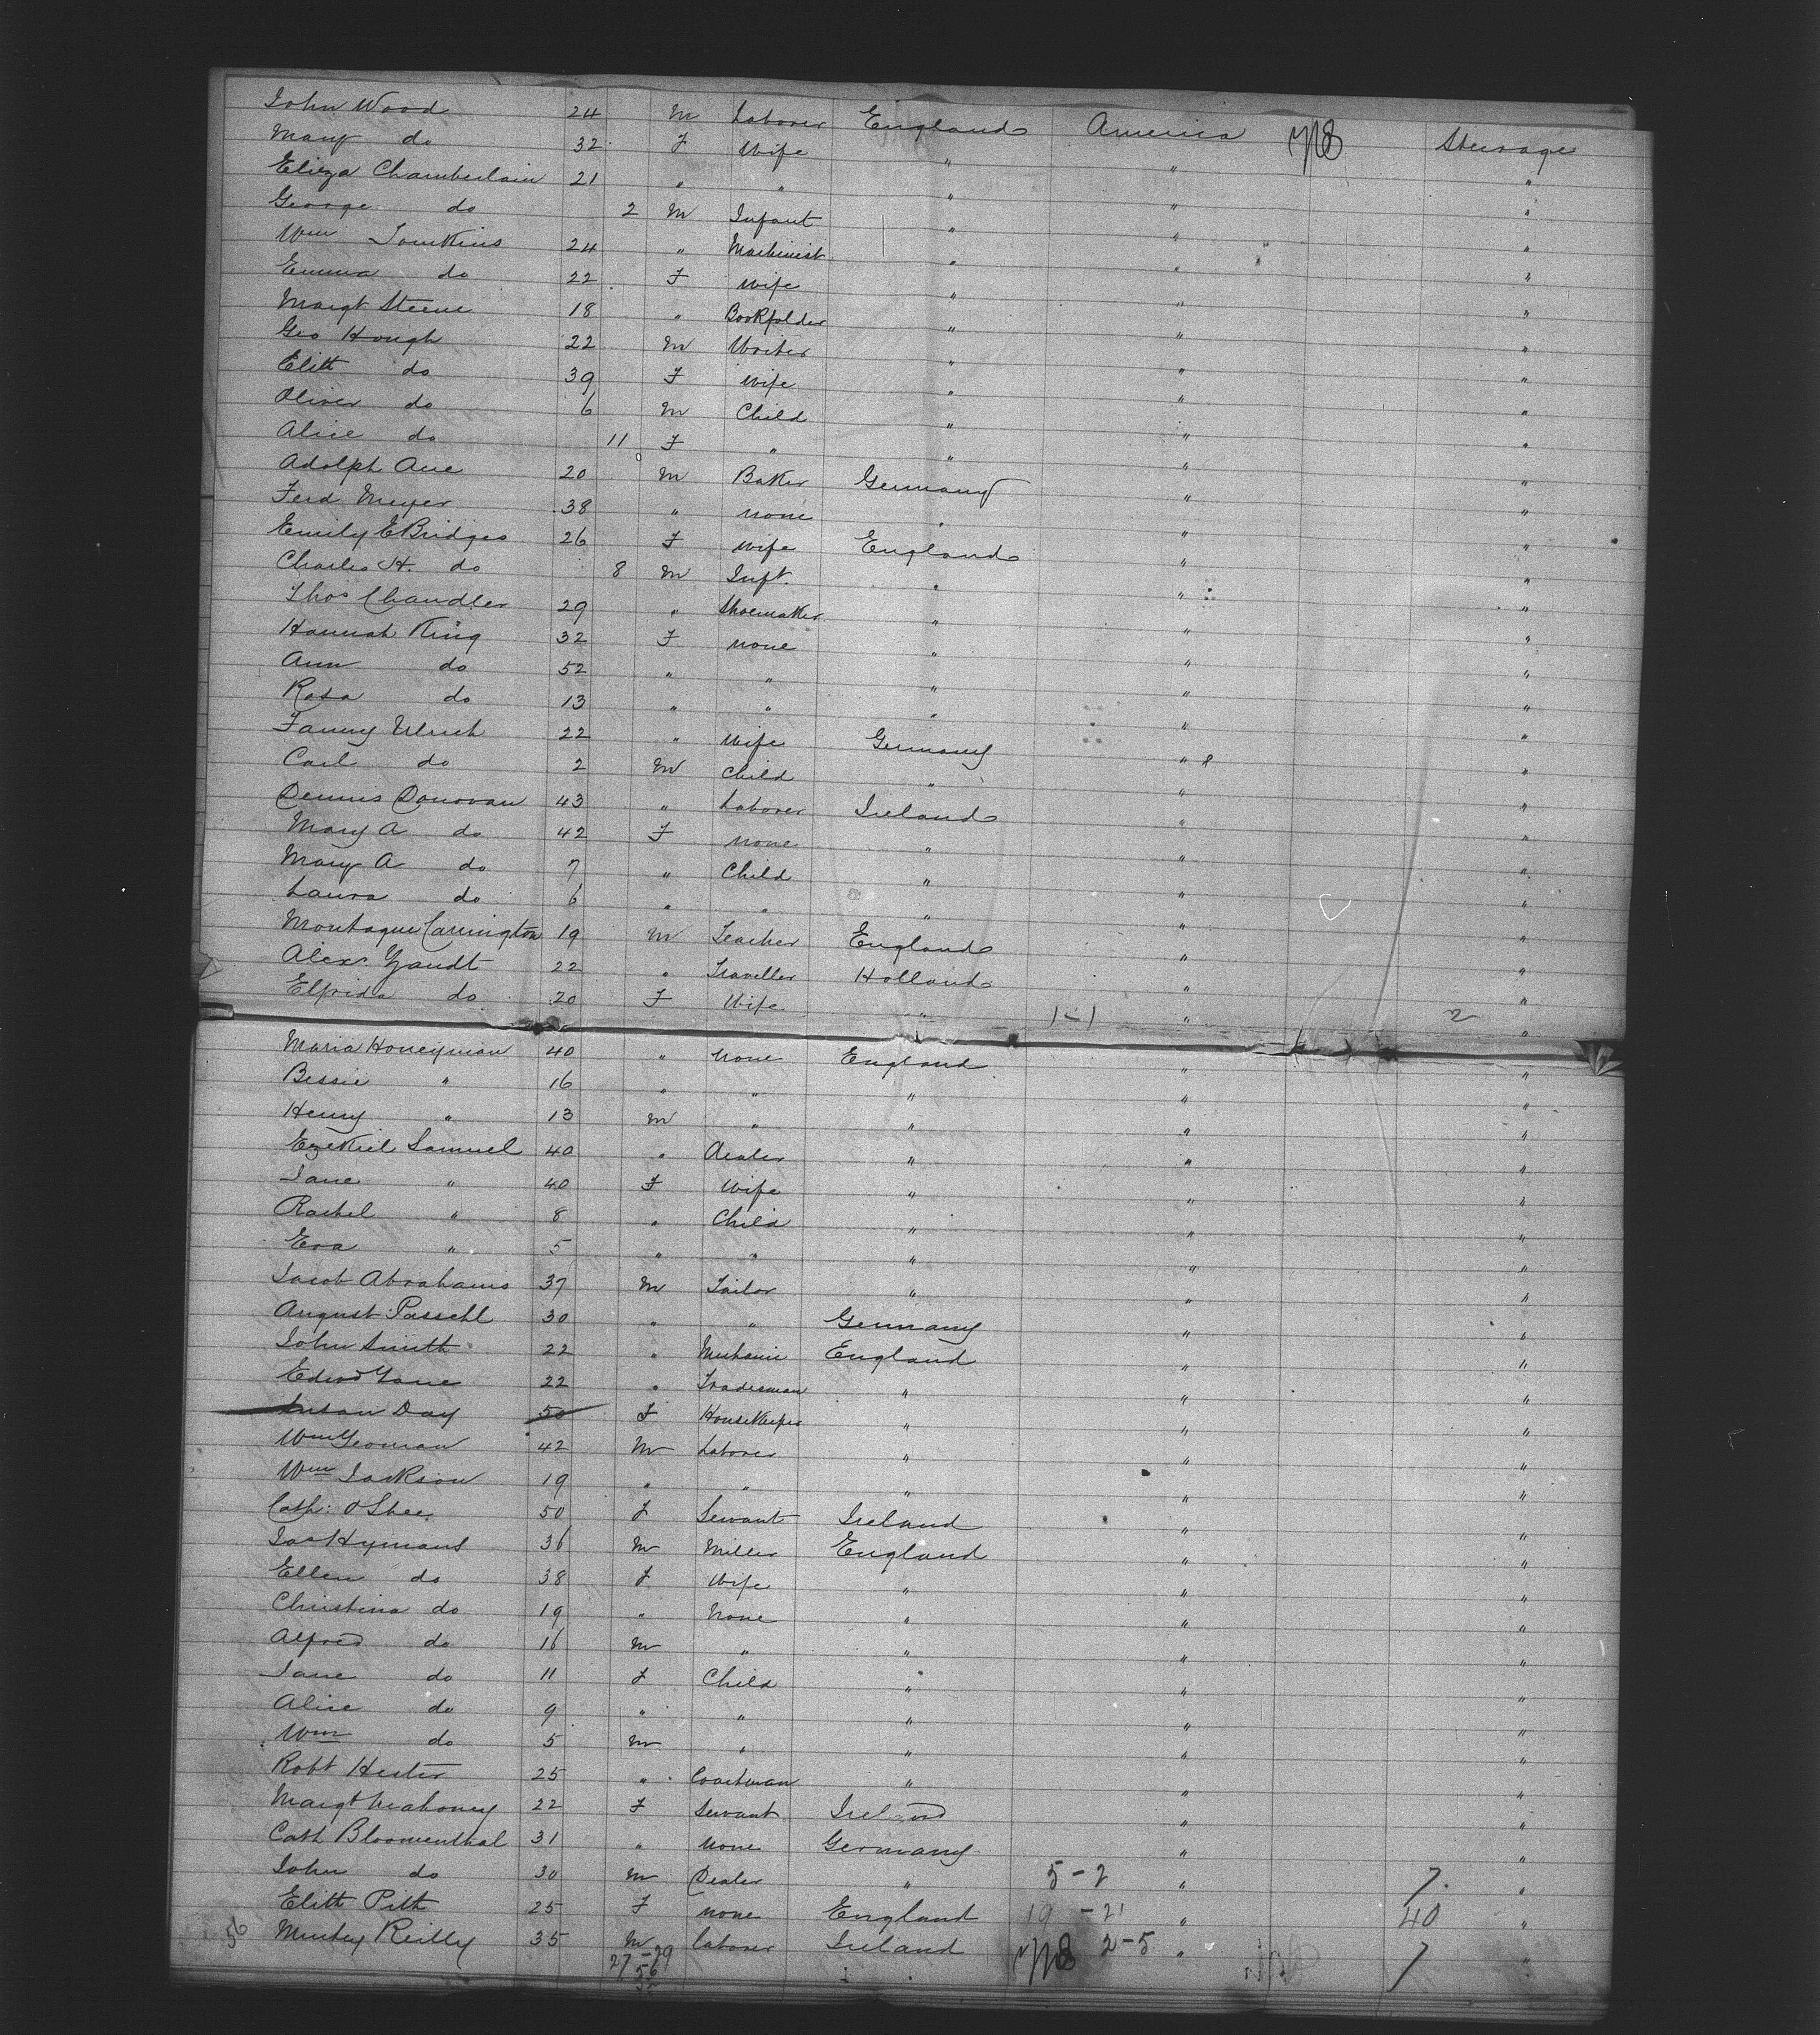 John Wood 24 M Laborer England America Steerage
Mary do 32 F Wife " " "
Eliza Chamberlain 21 " " " " "
George do 2 M Infant " " "
Wm Tomkins 24 " Machinist " " "
Emma do 22 F Wife " " "
Margt Steene 18 " Bookfolder " " "
Geo Hough 22 M Writer " " "
Elith do 39 F Wife " " "
Oliver do 6 M Child " " "
Alice do 11 F " " " "
Adolph Aue 20 M Baker Germany " "
Ferd Meyer 38 " none " " "
Emily E Bridges 26 F Wife England " "
Charles H. do 8 M Inft. " " "
Thos Chandler 29 " Shoemaker " " "
Hannah King 32 F none " " "
Ann do 52 " " " " "
Rosa do 13 " " " " "
Fanny Ulrich 22 " Wife Germany " "
Carl do 2 M Child " " "
Dennis Donovan 43 " Laborer Ireland " "
Mary A do 42 F none " " "
Mary A do 7 " Child " " "
Laura do 6 " " " " "
Montague Carrington 19 M Teacher England " "
Alexr. Zandt 22 " Traveller Holland " "
Elfrida do 20 F Wife " 1-1 " 2 "
Maria Honeyman 40 " None England " "
Bessie " 16 " " " " "
Henry " 13 M " " " "
Ezekiel Samuel 40 " Dealer " " "
Jane " 40 F Wife " " "
Rachel " 8 " Child " " "
Eva " 5 " " " " "
Jacob Abrahams 37 M Tailor " " "
August Passehl 30 " " Germany " "
John Smith 22 " Mechanic England " "
Edwd Lane 22 " Tradesman " " "
Susan Day 50 F Housekeeper " " "
Wm Yeoman 42 M Laborer " " "
Wm Jackson 19 " " " " "
Cath: O'Shee 50 F Servant Ireland " "
Jas Hymans 36 M Miller England " "
Ellen do 38 F Wife " " "
Christina do 19 " None " " "
Alfred do 16 M " " " "
Jane do 11 F Child " " "
Alice do 9 " " " " "
Wm do 5 M " " " "
Robt Hester 25 " Coachman " " "
Margt Mahoney 22 F Servant Ireland " "
Cath Bloomenthal 31 " None Germany " "
John do 30 M Dealer " 5-2 " 7 "
Elith Pith 25 F none England 19-21 " 40 "
56 Murtey Reilly 35 M laborer Ireland 2-5 " 7 "
27-29
56